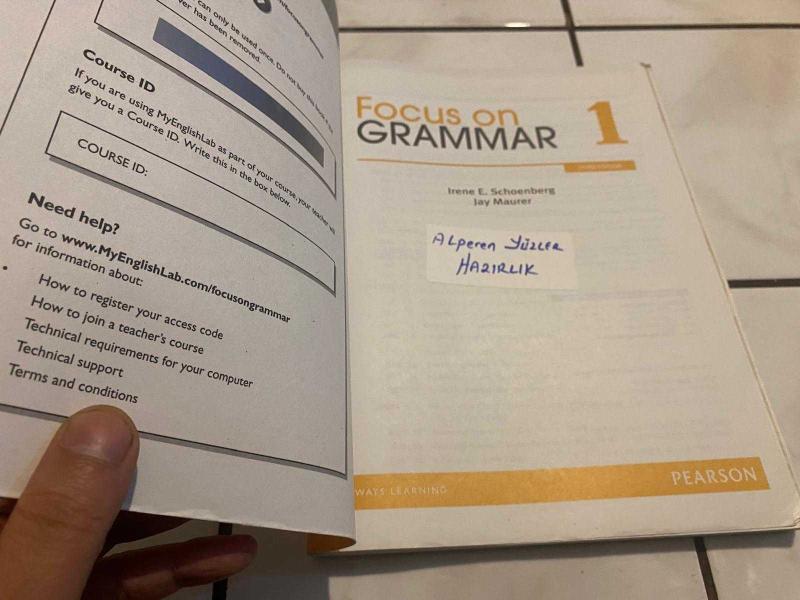 can only be used once. Do not buy this
ver has been removed.
Course ID
If you are using MyEnglishLab as part of your course, your teacher will
give you a Course ID. Write this in the box below.
COURSE ID:
Need help?
Go to www.MyEnglishLab.com/focusongrammar
for information about:
How to register your access code
How to join a teacher's course
Technical requirements for your computer
Technical support
Terms and conditions
Focus on
GRAMMAR 1
Irene E. Schoenberg
Jay Maurer
ALperen YüzLER
HAZIRLIK
WAYS LEARNING
PEARSON